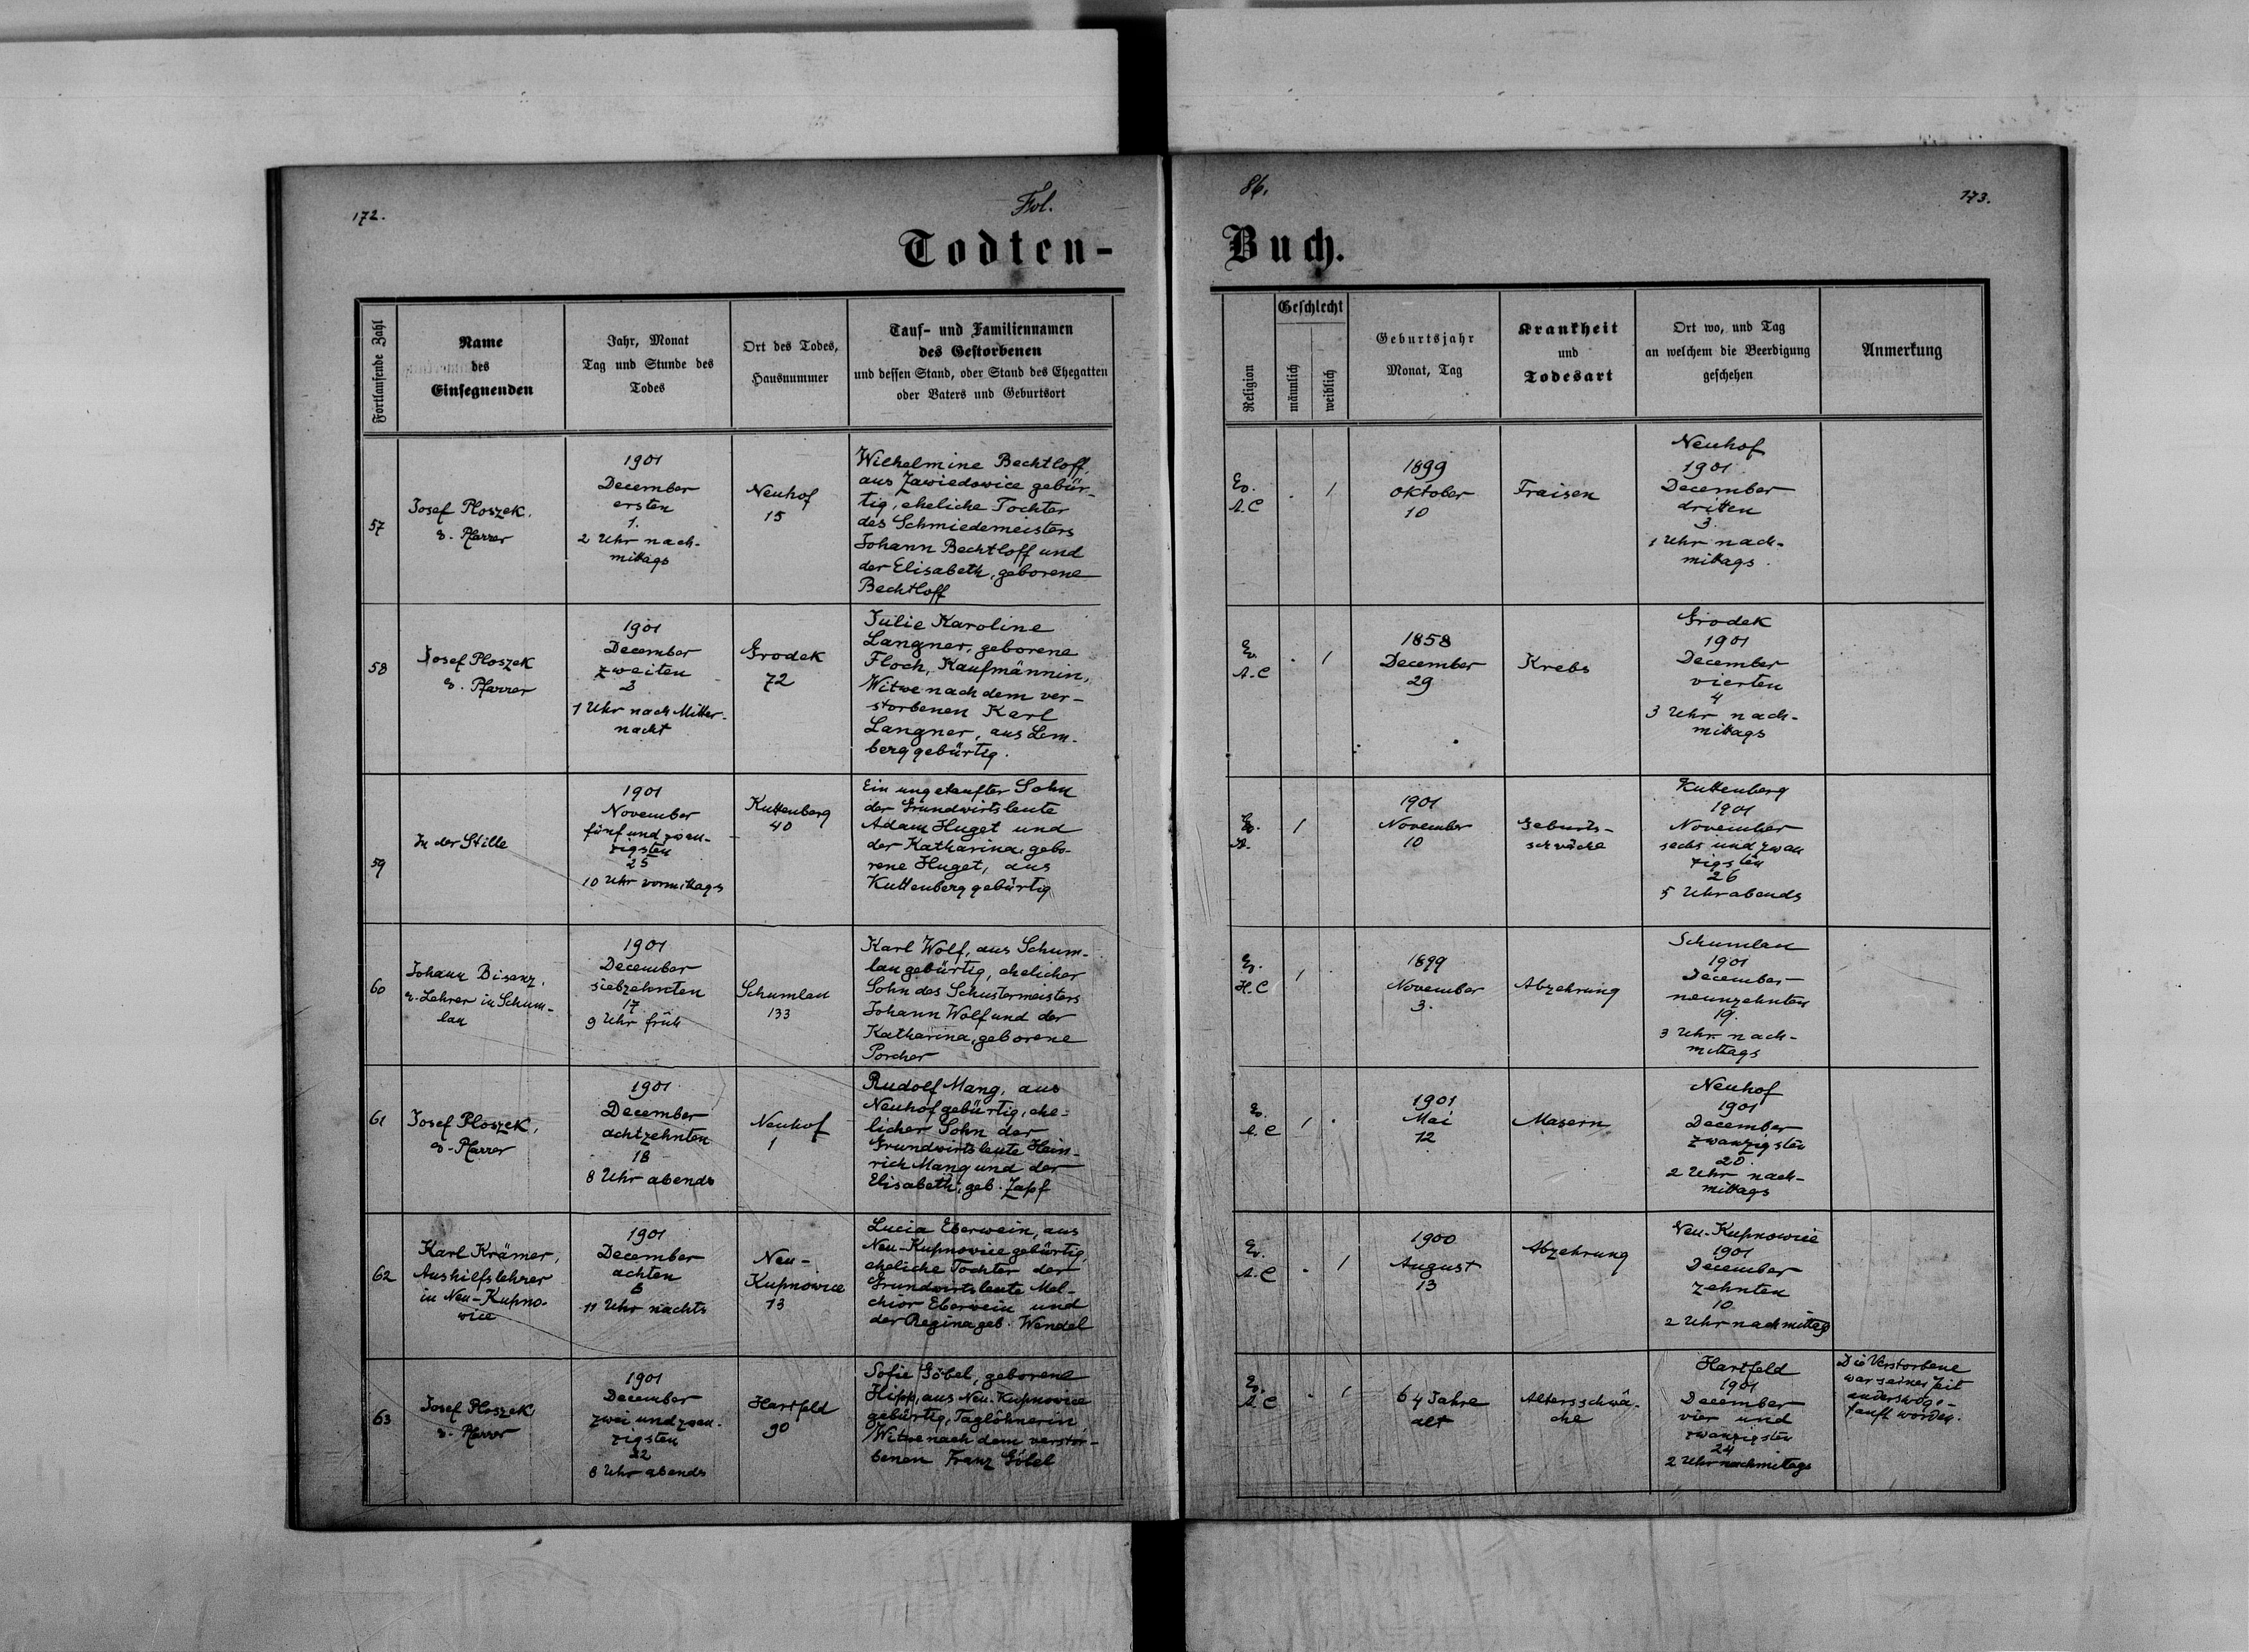 172.
Fol.
86.
173.
Todten-
Buch.
Fortlaufende Zahl
Name
des
Einsegnenden
Jahr, Monat
Tag und Stunde des
Todes
Ort des Todes,
Hausnummer
Tauf- und Familiennamen
des Gestorbenen
und dessen Stand, oder Stand des Ehegatten
oder Vaters und Geburtsort
Religion
Geschlecht
männlich
weiblich
Geburtsjahr
Monat, Tag
Krankheit
und
Todesart
Ort wo, und Tag
an welchem die Beerdigung
geschehen
Anmerkung
57
Josef Ploszek,
ev. Pfarrer
1901
December
ersten
1.
2 Uhr nach-
mittags
Neuhof
15
Wilhelmine Bechtloff,
aus Zawiedowice gebür-
tig, eheliche Tochter
des Schmiedemeisters
Johann Bechtloff und
der Elisabeth, geborene
Bechtloff
Ev.
A.C
. 1
1899
Oktober
10
Fraisen
Neuhof
1901
December
dritten
3.
1 Uhr nach-
mittags.
58
Josef Ploszek
ev. Pfarrer
1901
December
zweiten
2
1 Uhr nach Mitter-
nacht
Grodek
72
Julie Karoline
Langner, geborene
Floch, Kaufmännin,
Witwe nach dem ver-
storbenen Karl
Langner, aus Lem-
berg gebürtig.
Ev.
A.C
. 1
1858
December
29
Krebs
Grodek
1901
December
vierten
4
3 Uhr nach-
mittags
59
In der Stille
1901
November
fünf und zwan-
zigsten
25
10 Uhr vormittags
Kuttenberg
40
Ein ungetaufter Sohn
der Grundwirtsleute
Adam Huget und
der Katharina, gebo-
rene Huget, aus
Kuttenberg gebürtig
Ev.
H.
1
1901
November
10
Geburts-
schwäche
Kuttenberg
1901
November
sechs und zwan
zigsten
26
5 Uhr abends
60
Johann Bisanz,
ev. Lehrer in Schum-
lau
1901
December
siebzehnten
17
9 Uhr früh
Schumlau
133
Karl Wolf, aus Schum-
lau gebürtig, ehelicher
Sohn des Schustermeisters
Johann Wolf und der
Katharina, geborene
Porcher
Ev.
H.C
1 .
1899
November
3.
Abzehrung
Schumlau
1901
December
neunzehnten
19.
3 Uhr nach-
mittags
61
Josef Ploszek,
ev. Pfarrer
1901
December
achtzehnten
18
8 Uhr abends
Neuhof
1
Rudolf Mang, aus
Neuhof gebürtig, ehe-
licher Sohn der
Grundwirtsleute Hein-
rich Mang und der
Elisabeth, geb. Zapf
Ev.
A.C
1 .
1901
Mai
12
Masern
Neuhof
1901
December
zwanzigsten
20.
2 Uhr nach-
mittags
62
Karl Krämer,
Aushilfslehrer
in Neu-Kupno-
wice
1901
December
achten
8
11 Uhr nachts
Neu-
Kupnowice
13
Lucia Eberwein, aus
Neu-Kupnowice gebürtig,
eheliche Tochter der
Grundwirtsleute Mel-
chior Eberwein und
der Regina geb. Wendel
Ev.
A.C
. 1
1900
August
13
Abzehrung
Neu-Kupnowice
1901
December
zehnten
10.
2 Uhr nachmittag
63
Josef Ploszek
ev. Pfarrer
1901
December
zwei und zwan-
zigsten
22
8 Uhr abends
Hartfeld
90
Sofie Göbel, geborene
Hipp, aus Neu-Kupnowice
gebürtig, Taglöhnerin
Witwe nach dem verstor-
benen Franz Göbel
Ev.
A.C
. 1
64 Jahre
alt
Altersschwä-
che
Hartfeld
1901
December
vier und
zwanzigsten
24
2 Uhr nachmittags
Die Verstorbene
war seiner Zeit
anderswo ge-
tauft worden.